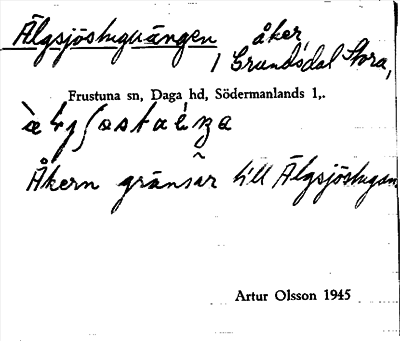 Älgsjöstuguängen, åker,
Grundsdal Stora,
Frustuna sn, Daga hd, Södermanlands l,.
Åkern gränsar till Älgsjöstugan
Artur Olsson 1945